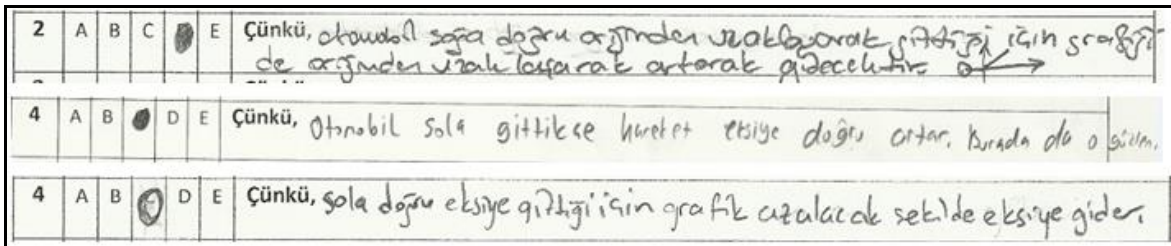 2 A B C D E Çünkü, otomobil sağa doğru orjinden uzaklaşarak gittiği için grafiği
de orjinden uzaklaşarak artarak gidecektir.
4 A B C D E Çünkü, Otomobil sola gittikçe hareket eksiye doğru artar. Burada da o
4 A B C D E Çünkü, Sola doğru eksiye gittiği için grafik azalacak şekilde eksiye gider.